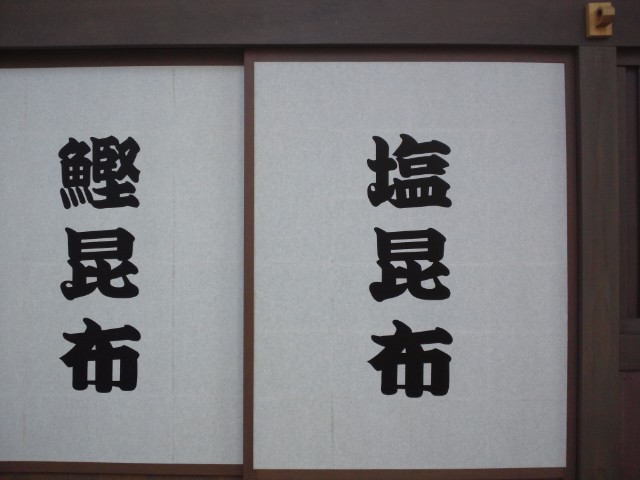 塩昆布
鰹昆布